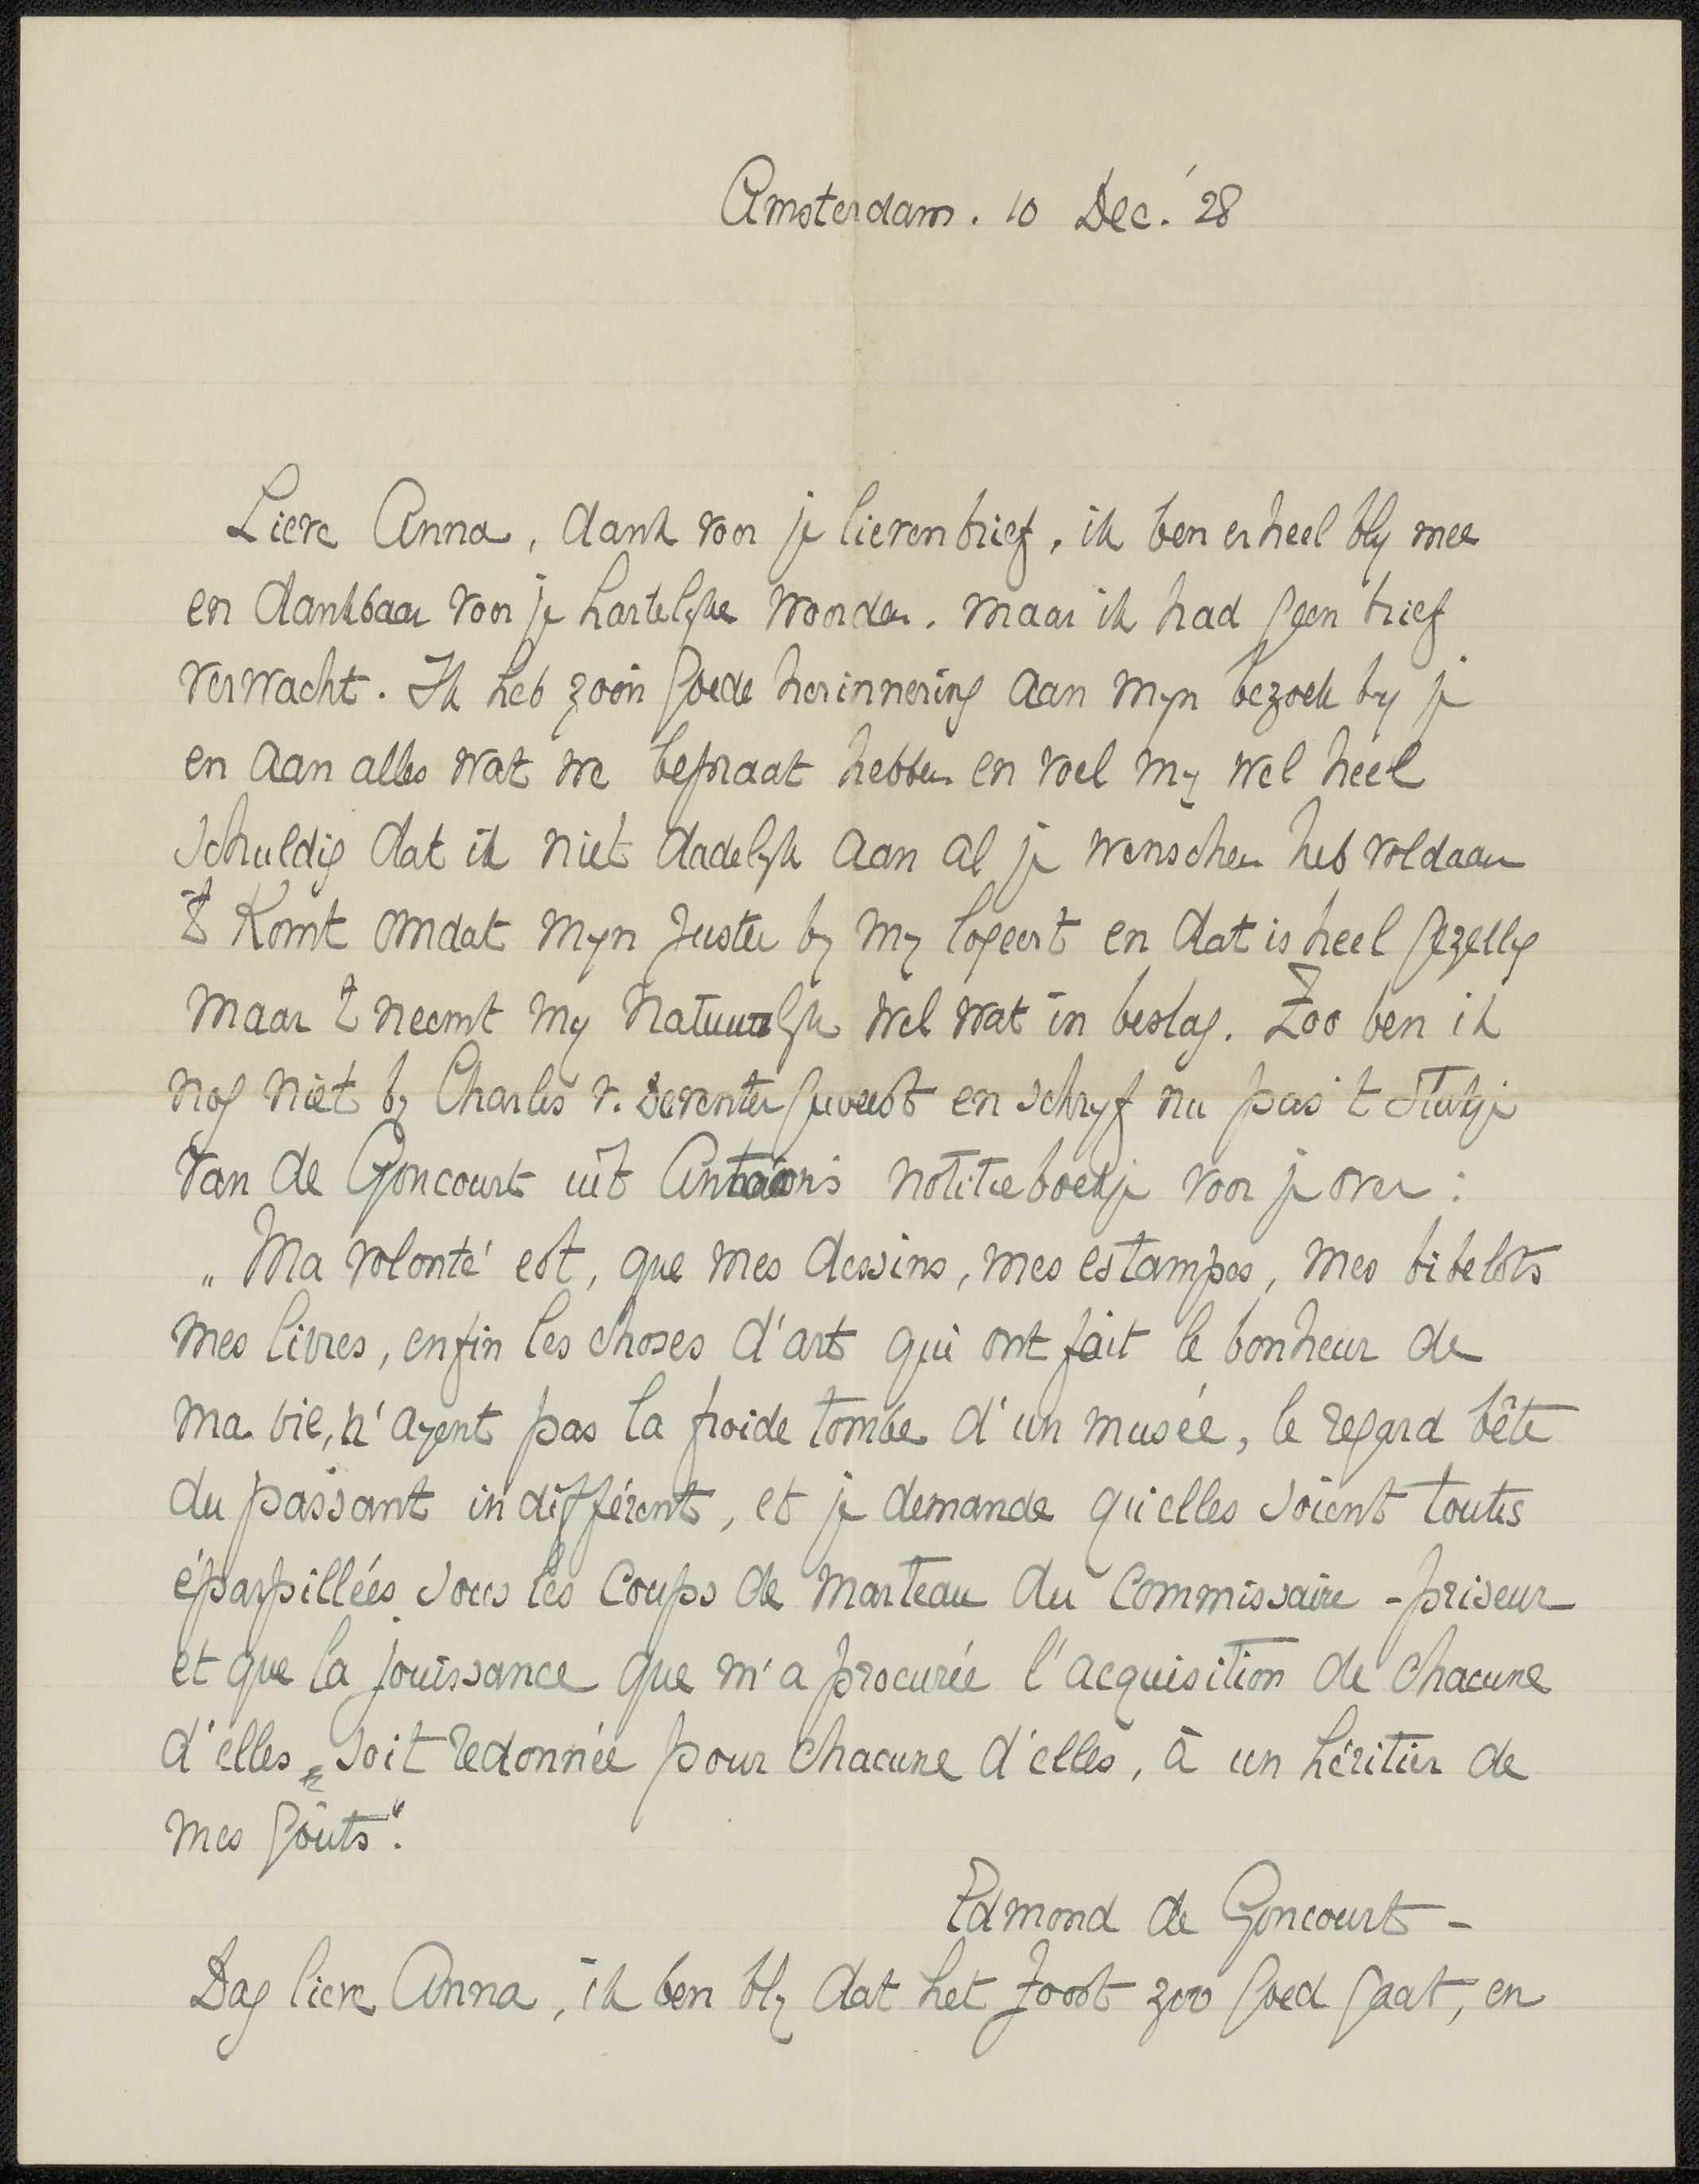 Amsterdam. 10 Dec. '28
Lieve Anna, dank voor je lieven brief, ik ben er heel bly mee
en dankbaar voor je hartelyke woorden. Maar ik had geen brief
verwacht. Ik heb zoo'n goede herinnering aan myn bezoek by je
en aan alles wat we bepraat hebben en voel my wel heel
schuldig dat ik niet dadelyk aan al je wenschen heb voldaan
't Komt omdat myn zuster by my logeert en dat is heel gezellig
maar 't neemt my natuurlyk wel wat in beslag. Zoo ben ik
nog niet by Charles v. Deventer geweest en schryf nu pas 't stukje
van de Goncourt uit Antoon's notitieboekje voor je over:
„Ma volonté est, que mes dessins, mes estampes, mes bibelots
mes livres, enfin les choses d'art qui ont fait le bonheur de
ma vie, n'ayent pas la froide tombe d'un musée, le regard bête
du passant indifférent, et je demande qu'elles soient toutes
éparpillées sous les coups de marteau du commissaire-priseur
et que la jouissance que m'a procurée l'acquisition de chacune
d'elles, soit redonnée pour chacune d'elles, à un héritier de
mes goûts".
Edmond de Goncourt -
Dag lieve Anna, ik ben bly dat het Joost zoo goed gaat, en